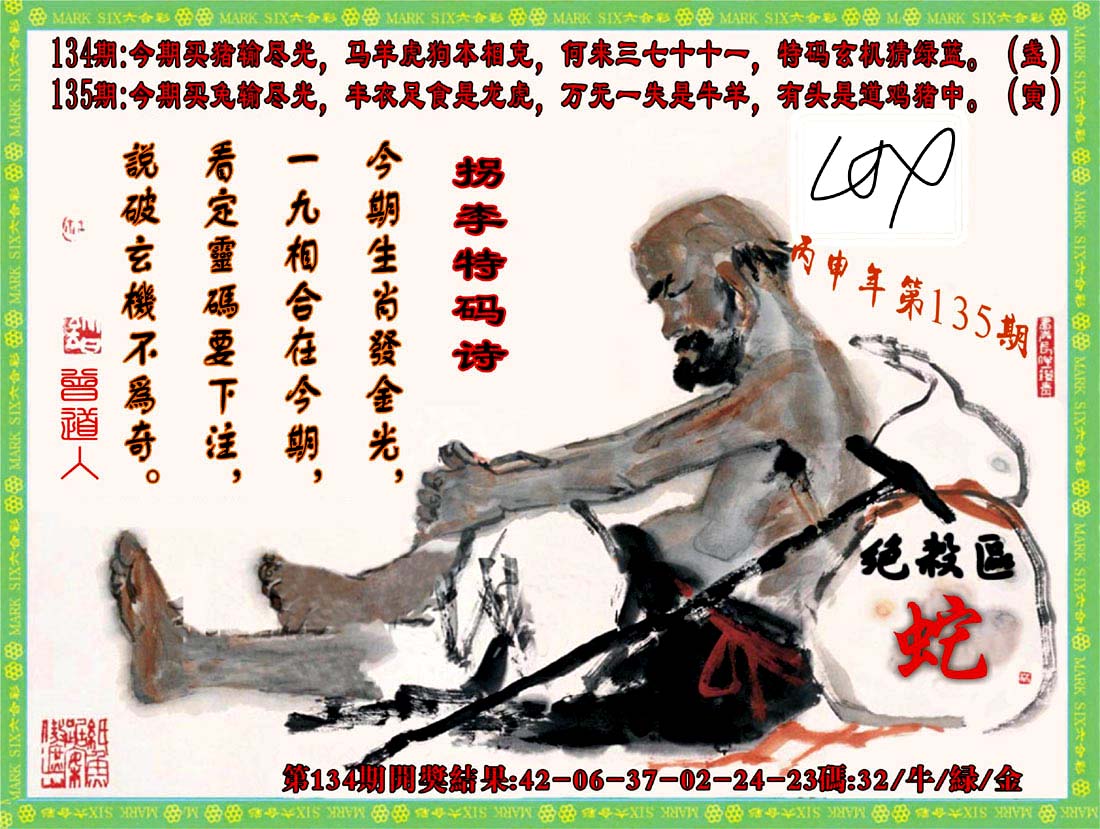 MARK SIX六合彩
134期:今期买猪输尽光，马羊虎狗本相克，何来三七十十一，特码玄机猜绿蓝。(盏)
135期:今期买兔输尽光，丰衣足食是龙虎，万无一失是牛羊，有头是道鸡猪中。(寅)
拐李特码诗
今期生肖發金光，
一九相合在今期，
看定靈碼要下注，
說破玄機不爲奇。
曾道人
丙申年第135期
绝殺區
蛇
第134期開獎結果:42-06-37-02-24-23碼:32/牛/緑/金